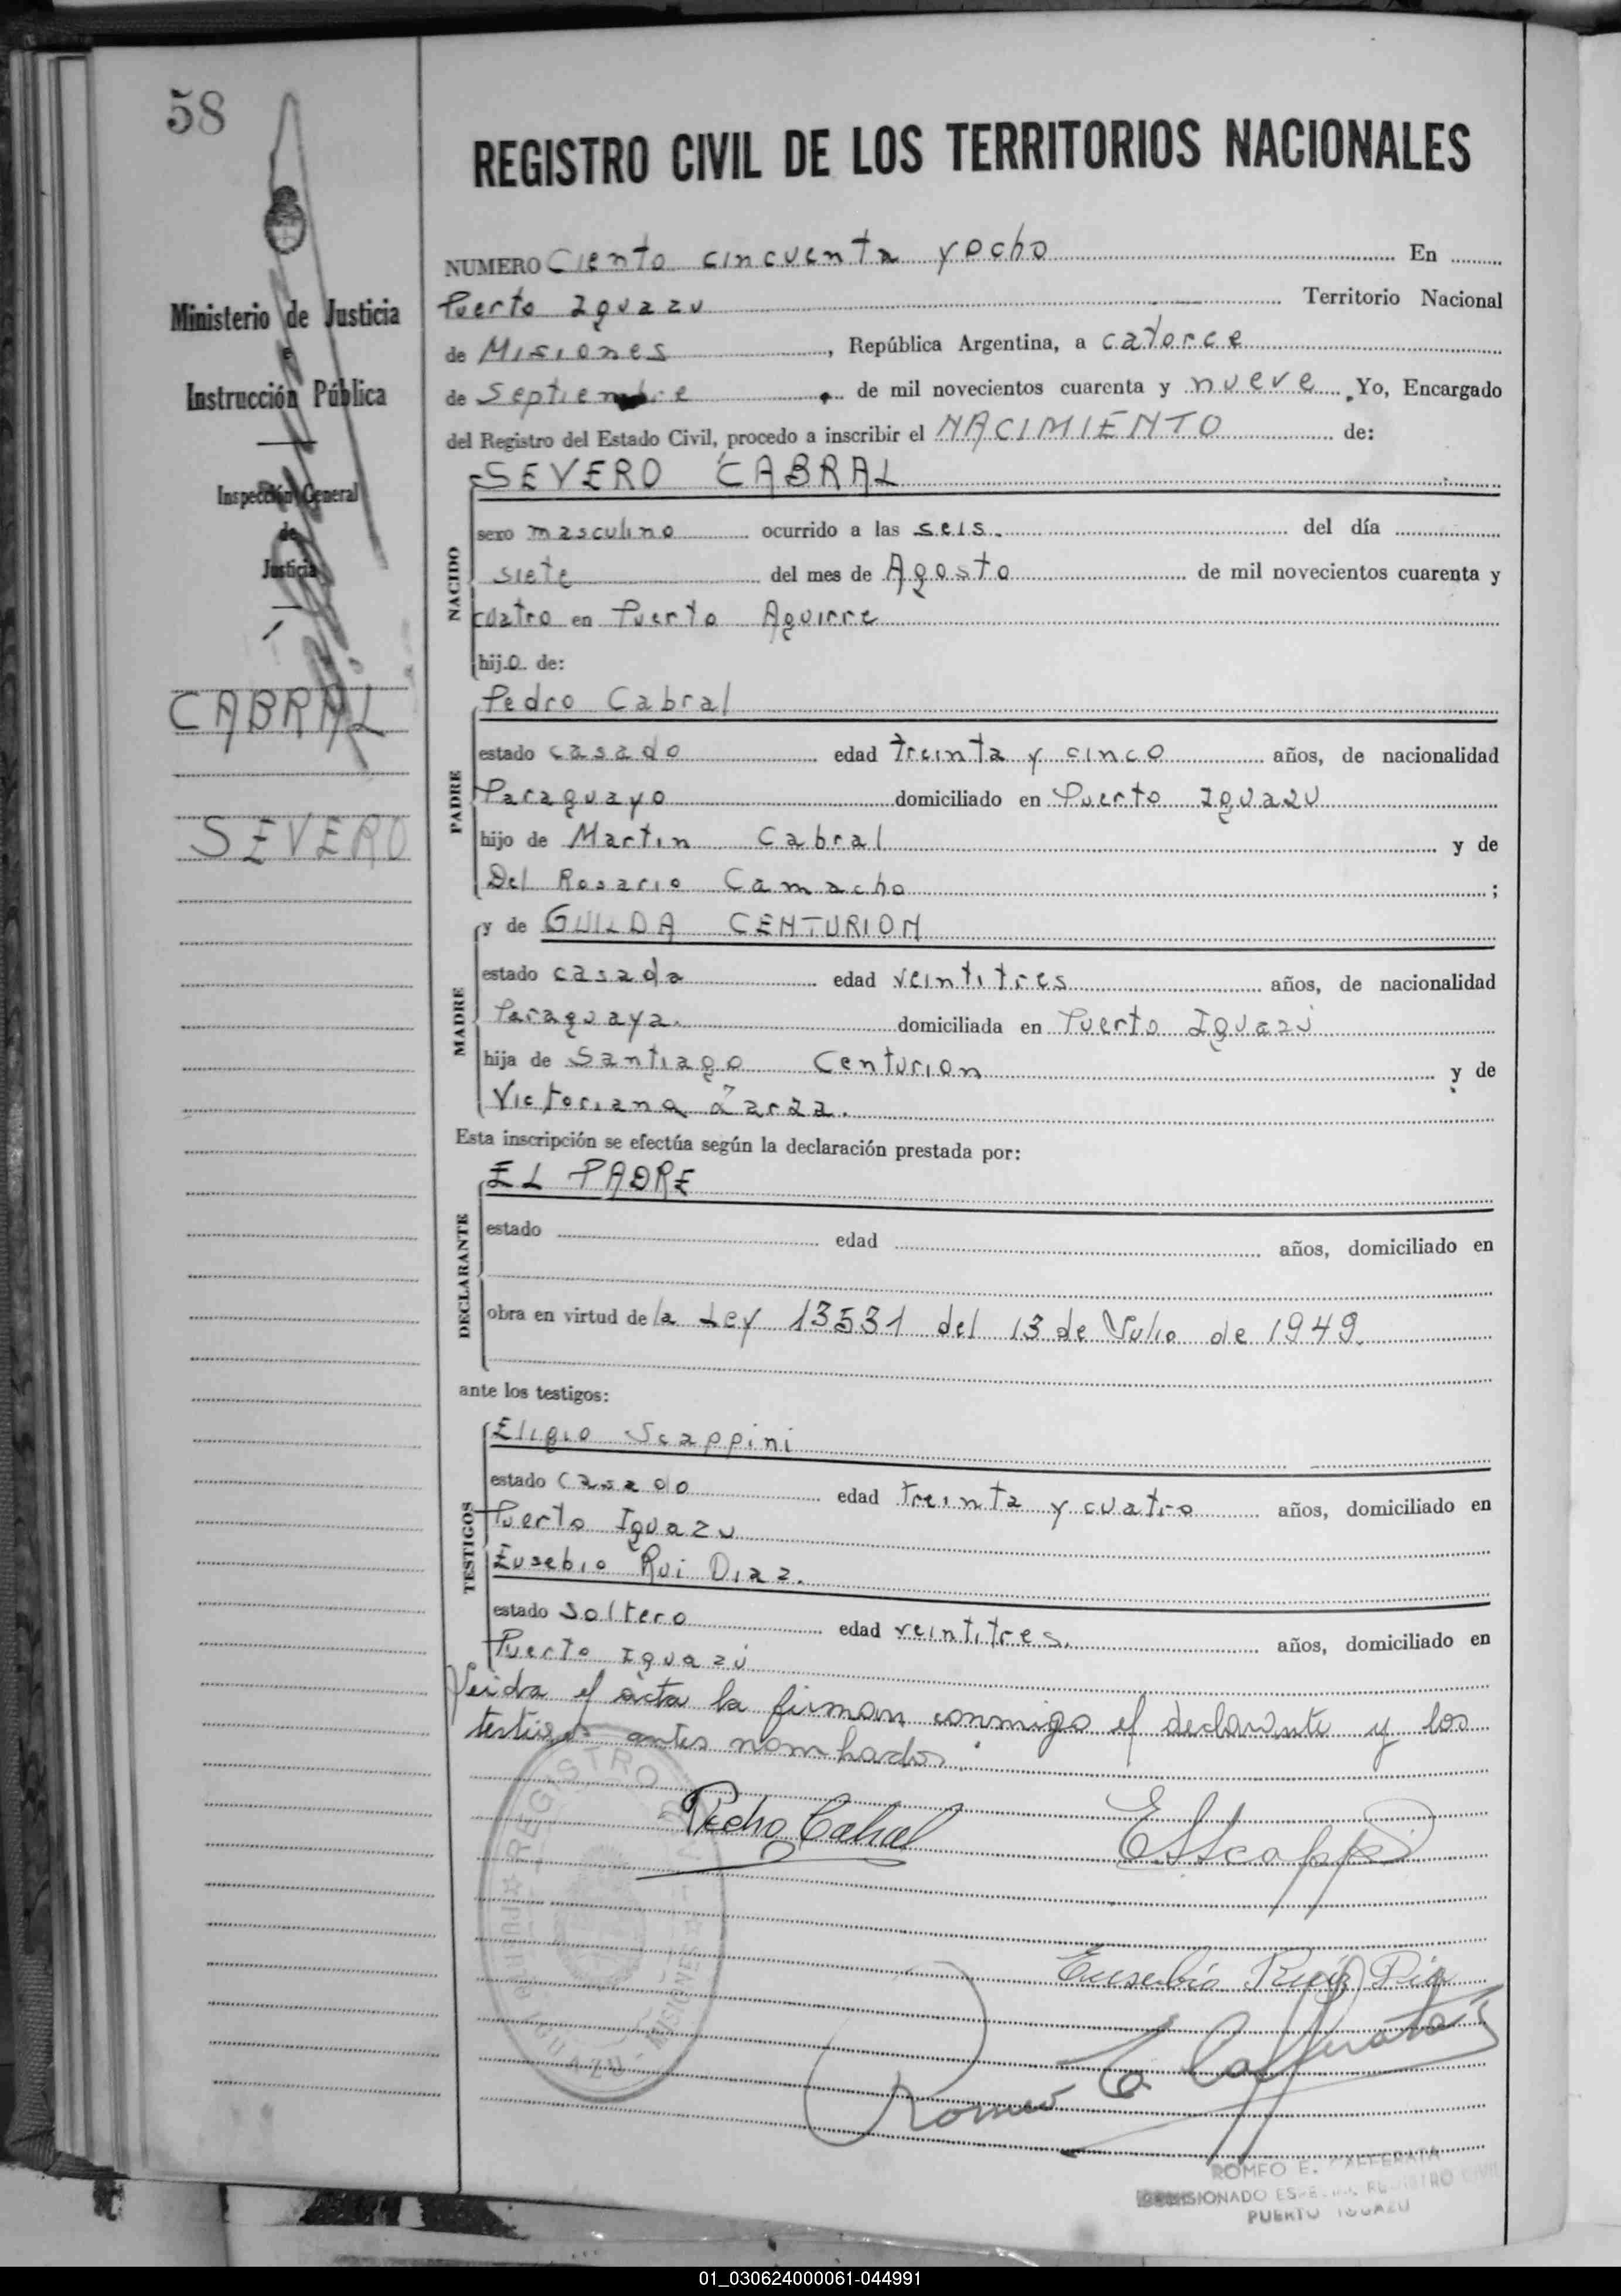 58
REGISTRO CIVIL DE LOS TERRITORIOS NACIONALES
Ministerio de Justicia
e
Instrucción Pública
Inspección General
de
Justicia
CABRAL
SEVERO
NUMERO Ciento cincuenta y ocho En
Puerto Iguazu Territorio Nacional
de Misiones, República Argentina, a catorce
de Septiembre de mil novecientos cuarenta y nueve. Yo, Encargado
del Registro del Estado Civil, procedo a inscribir el NACIMIENTO de:
NACIDO
SEVERO CABRAL
sexo masculino ocurrido a las seis. del día
siete del mes de Agosto de mil novecientos cuarenta y
cuatro en Puerto Aguirre
hijo de:
PADRE
Pedro Cabral
estado casado edad treinta y cinco años, de nacionalidad
Paraguayo domiciliado en Puerto Iguazu
hijo de Martin Cabral y de
Del Rosario Camacho ;
MADRE
y de GUILDA CENTURION
estado casada edad veintitres años, de nacionalidad
Paraguaya. domiciliada en Puerto Iguazú
hija de Santiago Centurion y de
Victoriana Zarza.
Esta inscripción se efectúa según la declaración prestada por:
DECLARANTE
EL PADRE
estado edad años, domiciliado en
obra en virtud de la Ley 13531 del 13 de Julio de 1949.
ante los testigos:
TESTIGOS
Eligio Scappini
estado casado edad treinta y cuatro años, domiciliado en
Puerto Iguazu
Eusebio Rui Diaz.
estado soltero edad veintitres. años, domiciliado en
Puerto Iguazú
Leida el acta la firman conmigo el declarante y los
testigos antes nombrados.
Pedro Cabral
EScappi
Eusebio Ruiz Dia
Romeo E Cafferata
REGISTRO
PUERTO IGUAZU - MISIONES
ROMEO E. CAFFERATA
COMISIONADO ESPECIAL REGISTRO CIVIL
PUERTO IGUAZU
01_030624000061-044991